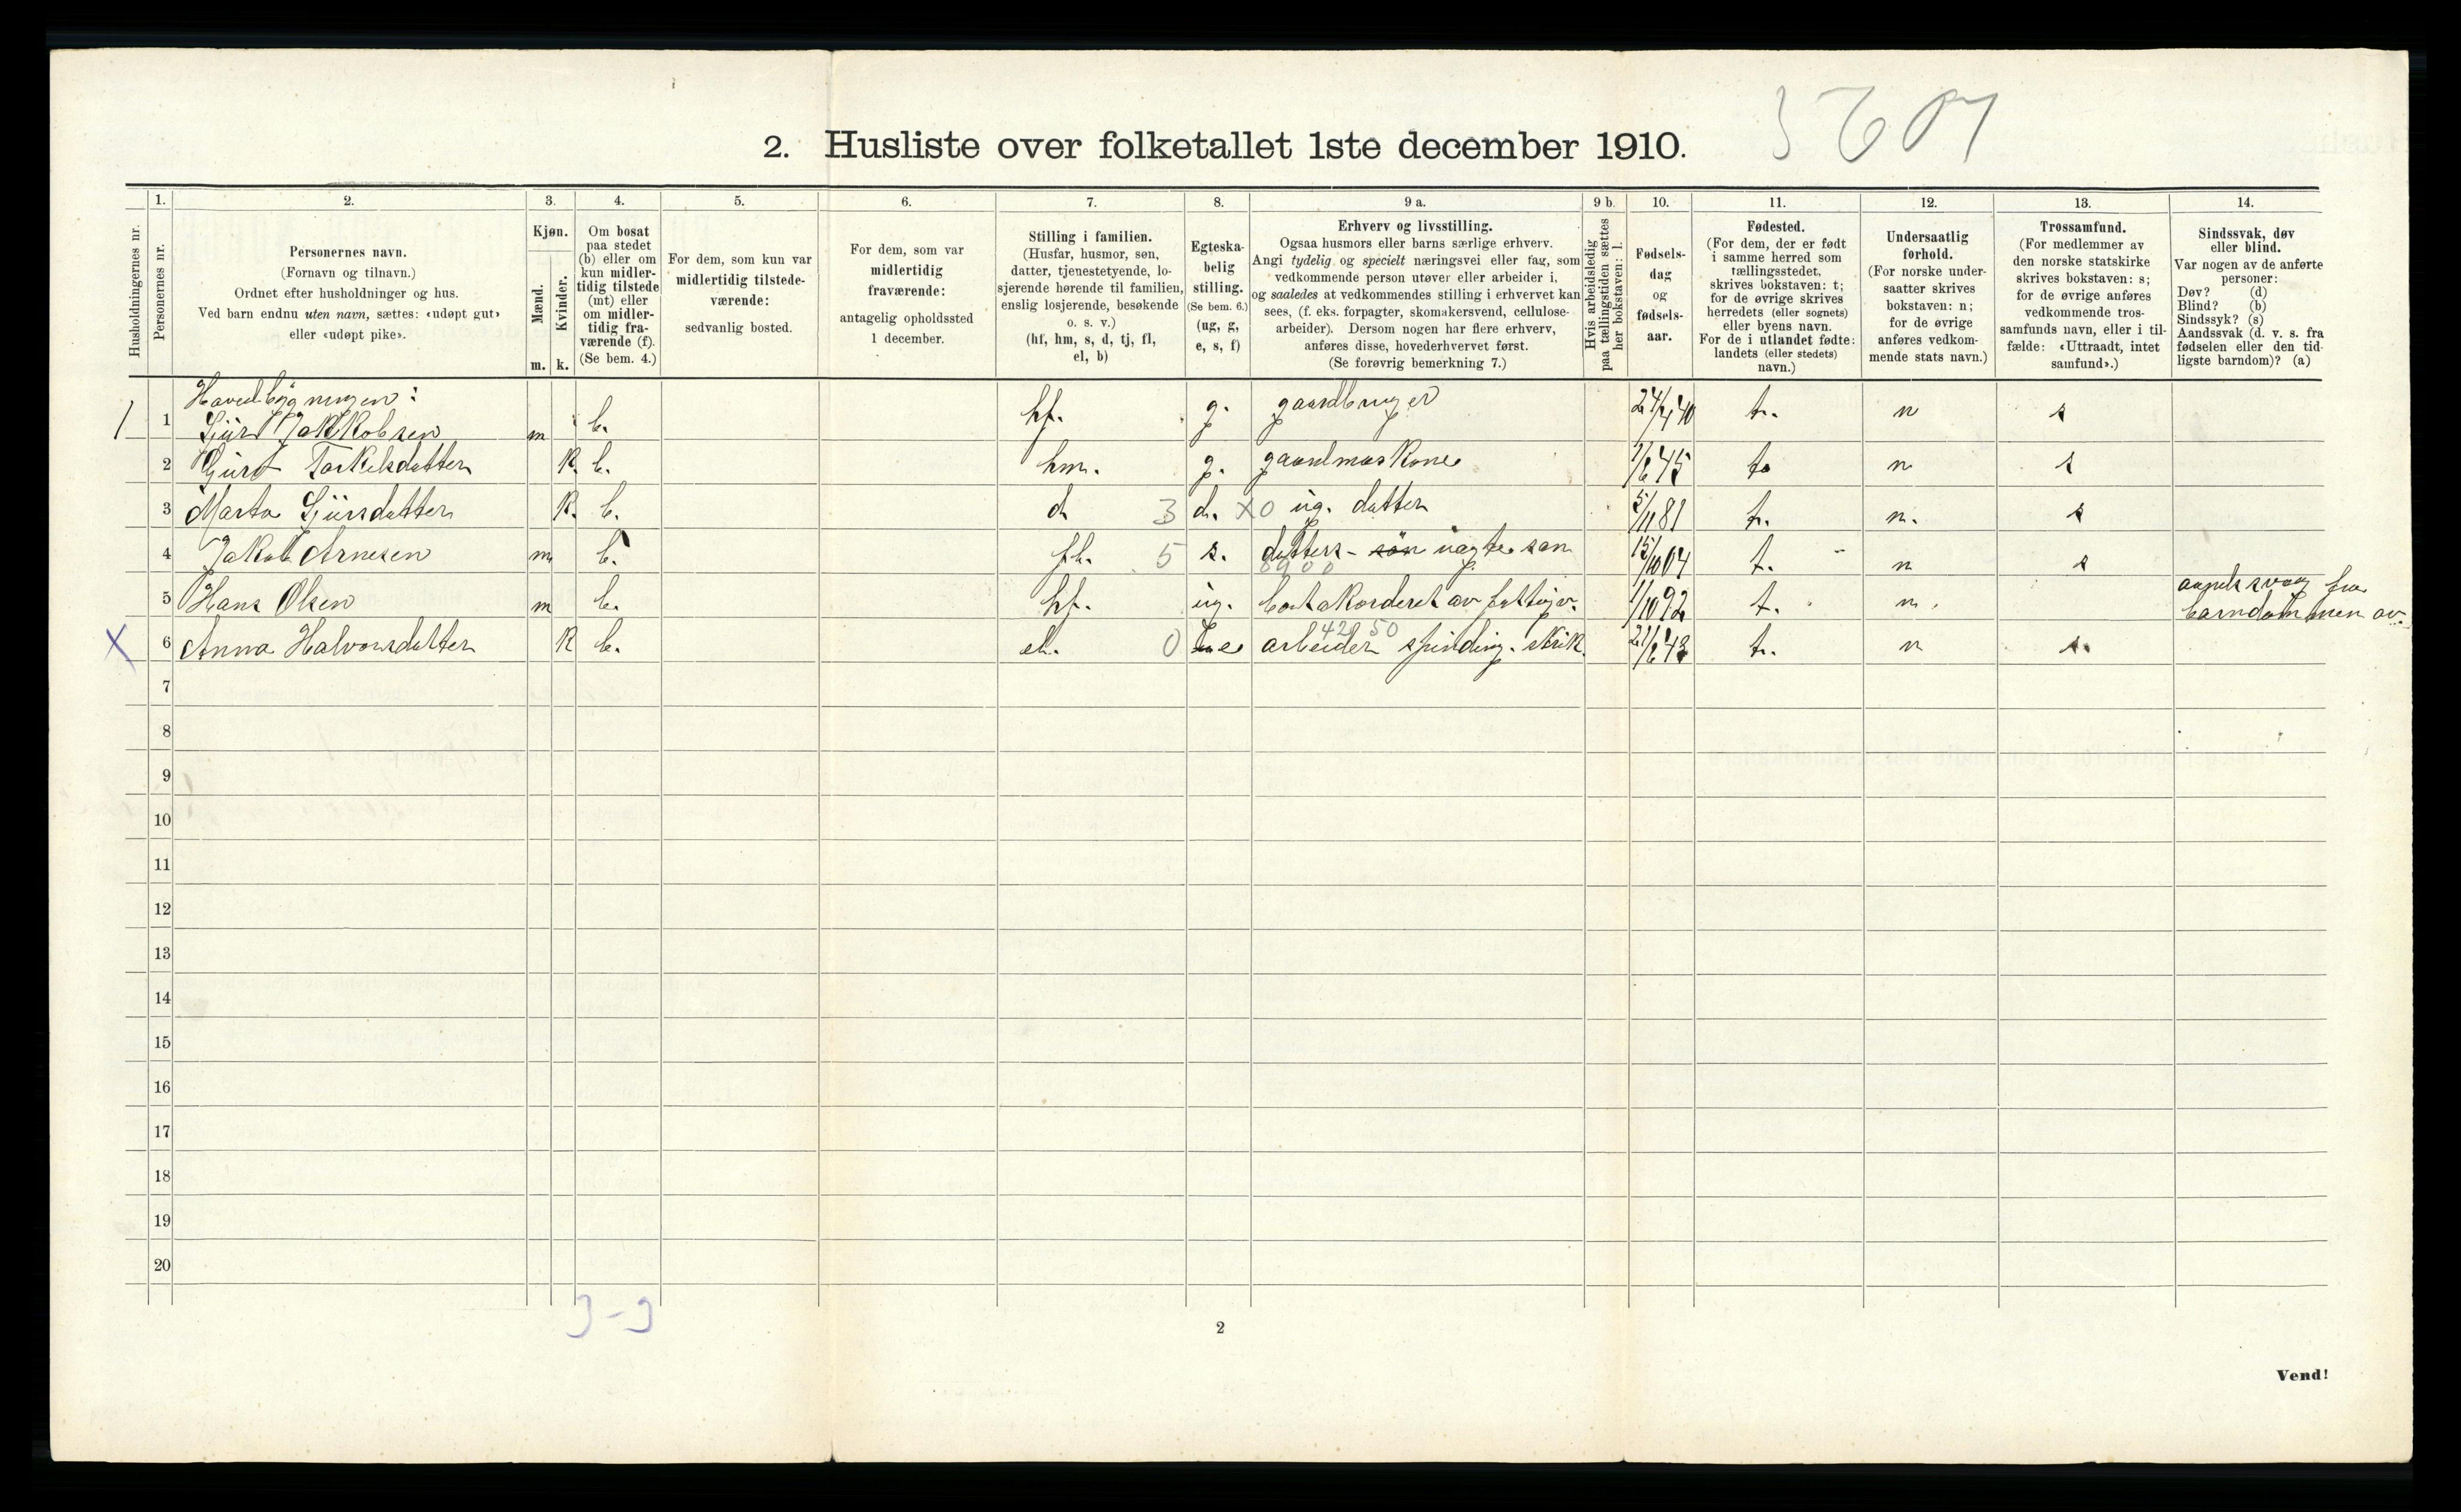 3601
2. Husliste over folketallet 1ste december 1910.
Husholdningernes nr.
1.
Personernes nr.
2.
Personernes navn.
(Fornavn og tilnavn.)
Ordnet efter husholdninger og hus.
Ved barn endnu uten navn, sættes: «udøpt gut»
eller «udøpt pike».
3.
Kjøn.
Mænd.
Kvinder.
m. k.
4.
Om bosat
paa stedet
(b) eller om
kun midler-
tidig tilstede
(mt) eller
om midler-
tidig fra-
værende (f).
(Se bem. 4.)
5.
For dem, som kun var
midlertidig tilstede-
værende:
sedvanlig bosted.
6.
For dem, som var
midlertidig
fraværende:
antagelig opholdssted
1 december.
7.
Stilling i familien.
(Husfar, husmor, søn,
datter, tjenestetyende, lo-
sjerende hørende til familien,
enslig losjerende, besøkende
o. s. v.)
(hf, hm, s, d, tj, fl,
el, b)
8.
Egteska-
belig
stilling.
(Se bem. 6.)
(ug, g,
e, s, f)
9 a.
Erhverv og livsstilling.
Ogsaa husmors eller barns særlige erhverv.
Angi tydelig og specielt næringsvei eller fag, som
vedkommende person utøver eller arbeider i,
og saaledes at vedkommendes stilling i erhvervet kan
sees, (f. eks. forpagter, skomakersvend, cellulose-
arbeider). Dersom nogen har flere erhverv,
anføres disse, hovederhvervet først.
(Se forøvrig bemerkning 7.)
9 b.
Hvis arbeidsledig
paa tællingstiden sættes
her bokstaven: l.
10.
Fødsels-
dag
og
fødsels-
aar.
11.
Fødested.
(For dem, der er født
i samme herred som
tællingsstedet,
skrives bokstaven: t;
for de øvrige skrives
herredets (eller sognets)
eller byens navn.
For de i utlandet fødte:
landets (eller stedets)
navn.)
12.
Undersaatlig
forhold.
(For norske under-
saatter skrives
bokstaven: n;
for de øvrige
anføres vedkom-
mende stats navn.)
13.
Trossamfund.
(For medlemmer av
den norske statskirke
skrives bokstaven: s;
for de øvrige anføres
vedkommende tros-
samfunds navn, eller i til-
fælde: «Uttraadt, intet
samfund».)
14.
Sindssvak, døv
eller blind.
Var nogen av de anførte
personer:
Døv? (d)
Blind? (b)
Sindssyk? (s)
Aandssvak (d. v. s. fra
fødselen eller den tid-
ligste barndom)? (a)
Hovedbygningen:
1 1 Sjur Jakkobsen m b. hf. g. gaardbruger t. n s
2 Guro Torkelsdatter K. b. hm. g. gaardmaskone 1/6 45 to n s
3 Marta Sjursdatter K. b. d 3 d. x0 ug. datter 5/11 81 t. n. s
4 Jakob Arnesen m b. fl. 5 s. datters- søn uægte søn 15/10 04 t. n s
8900
5 Hans Olsen m b. hf. ug. bortakorderet av fattigv. 1/10 92 t. n. aandssvag fra
barndommen av.
4250
X 6 Anna Halvorsdatter K b. el. 0 e arbeider spinding. strik. 21/6 43 t. n s.
7
8
9
10
11
12
13
14
15
16
17
18
19
20
3-3
2
Vend!